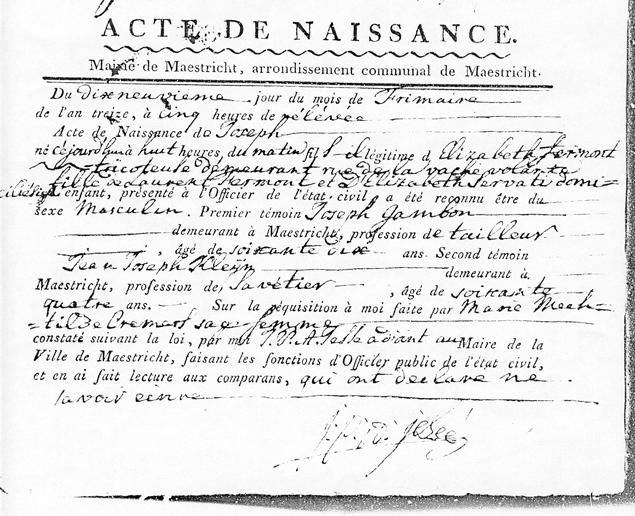 ACTE DE NAISSANCE.
Mairie de Maestricht, arrondissement communal de Maestricht.
Du dixneuvieme jour du mois de Frimaire
de l'an treize, à cinq heures de rélévée
Acte de Naissance de Joseph
né cejourdhui à huit heures du matin fils illégitime d'Elizabeth Hermont
tricoteuse demeurant rue de la vache volante
fille de Laurent Hermont et d'Elizabeth Servati domi-
ciliés L'enfant, présenté à l'Officier de l'état civil a été reconnu être du
sexe Masculin. Premier témoin Joseph Jambon
demeurant à Maestricht, profession de tailleur
, âgé de soixante dix ans. Second témoin
Jean Joseph Kleijn demeurant à
Maestricht, profession de savétier, âgé de soixante
quatre ans. Sur la réquisition à moi faite par Marie Mech-
tilde Cremers sage femme
constaté suivant la loi, par moi adjoint au Maire de la
Ville de Maestricht, faisant les fonctions d'Officier public de l'état civil,
et en ai fait lecture aux comparans, qui ont declaré ne
savoir ecrire